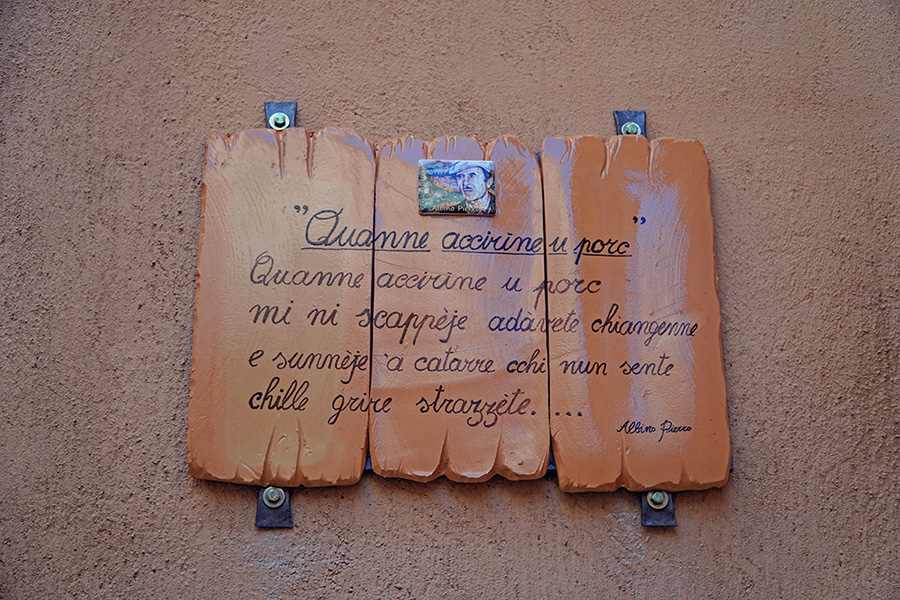 Albino Pierro
"Quanne accirine u porc"
Quanne accirine u porc
mi ni scappèje adàvete chiangenne
e sunnèje 'a catarre cchi nun sente
chille grire strazzète. ...
Albino Pierro